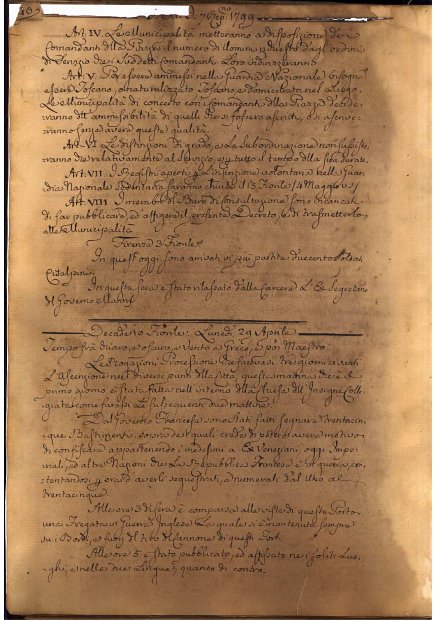 1799
Art. IV. Le Municipalità metteranno a disposizione dei
Comandanti della Piazza il numero di Uomini
di Servizio che i suddetti Comandanti loro indirizzeranno
Art. V. Per essere ammessi nella Guardia Nazionale bisogna
esser Toscano, o naturalizzato Toscano, e domiciliato nel Luogo.
Le Municipalità di concerto con i Comandanti della Piazza decide-
ranno dell'ammissibilità di quelli che si fossero ascritti, o si ascrive-
ranno senza avere questa qualità.
Art. VI. Le distinzioni di grado, e la Subordinazione non sussiste-
ranno che relativamente al Servizio, e per tutto il tempo della sua durata.
Art. VII. I Registri aperti per l'inscrizione volontaria nella Guar-
dia Nazionale Sedentaria saranno chiusi il 15 Fiorile /4 Maggio/
Art. VIII. I membri del Burò di Consultazione sono incaricati
di far pubblicare, ed affiggere il presente Decreto, e di trasmetterlo
alle Municipalità
Firenze 3 Fiorile
In quest'oggi sono arrivati in più partite duecento Soldati
Cisalpini.
In questa sera è stato rilasciato dalla Carcere l'Ex Segretario
del Governo
Decade 10 Fiorile: Lunedì 29 Aprile
Tempo frà chiaro, e oscuro, e vento a Greco, e poi Maestro
Le Rogazioni, Processione che facevasi tre giorni avanti
l'Ascensione nei diversi punti della Città, questa mattina che è il
primo giorno è stata fatta nell'interno della Chiesa dell'Insigne Colle-
giata come farassi le susseguenti due mattine.
Dal Governo Francese sono stati fatti segnare trentacin-
que Bastimenti, sopra dei quali crede di potersi avere motivo
di confiscare appartenendo i medesimi a Ex Veneziani, oggi Impe-
riali, ed altre Nazioni che la Repubblica Francese è in guerra, con-
tentandosi per ora d'averli sequestrati, e numerati dal uno al
trentacinque.
Alle ore 3 di sera è comparsa alle viste di questo Porto
una Fregata da Guerra Inglese la quale si è mantenuta sempre
su i Bordi, e fuori del tiro del Cannone di questi Forti.
Alle ore 5 è stato pubblicato, ed affissato nei soliti Luo-
ghi, e nelle due Lingue, quanto di contro.